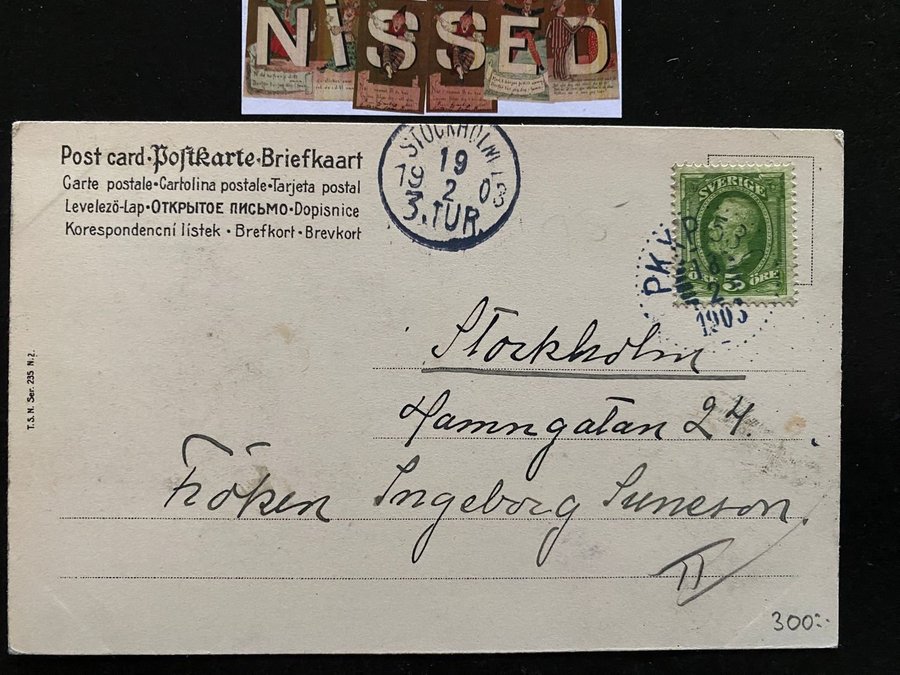 NISSED
Post card · Postkarte · Briefkaart
Carte postale • Cartolina postale • Tarjeta postal
Levelező-Lap • ОТКРЫТОЕ ПИСЬМО • Dopisnice
Korespondencní lístek • Brefkort • Brevkort
STOCKHOLM
19
19 2 03
3.TUR.
SVERIGE
5 ÖRE
PKXP
18
2
1903
T.S.N. Ser. 235 N:2.
Stockholm
Hamngatan 24.
Fröken Ingeborg Suneson.
300:-